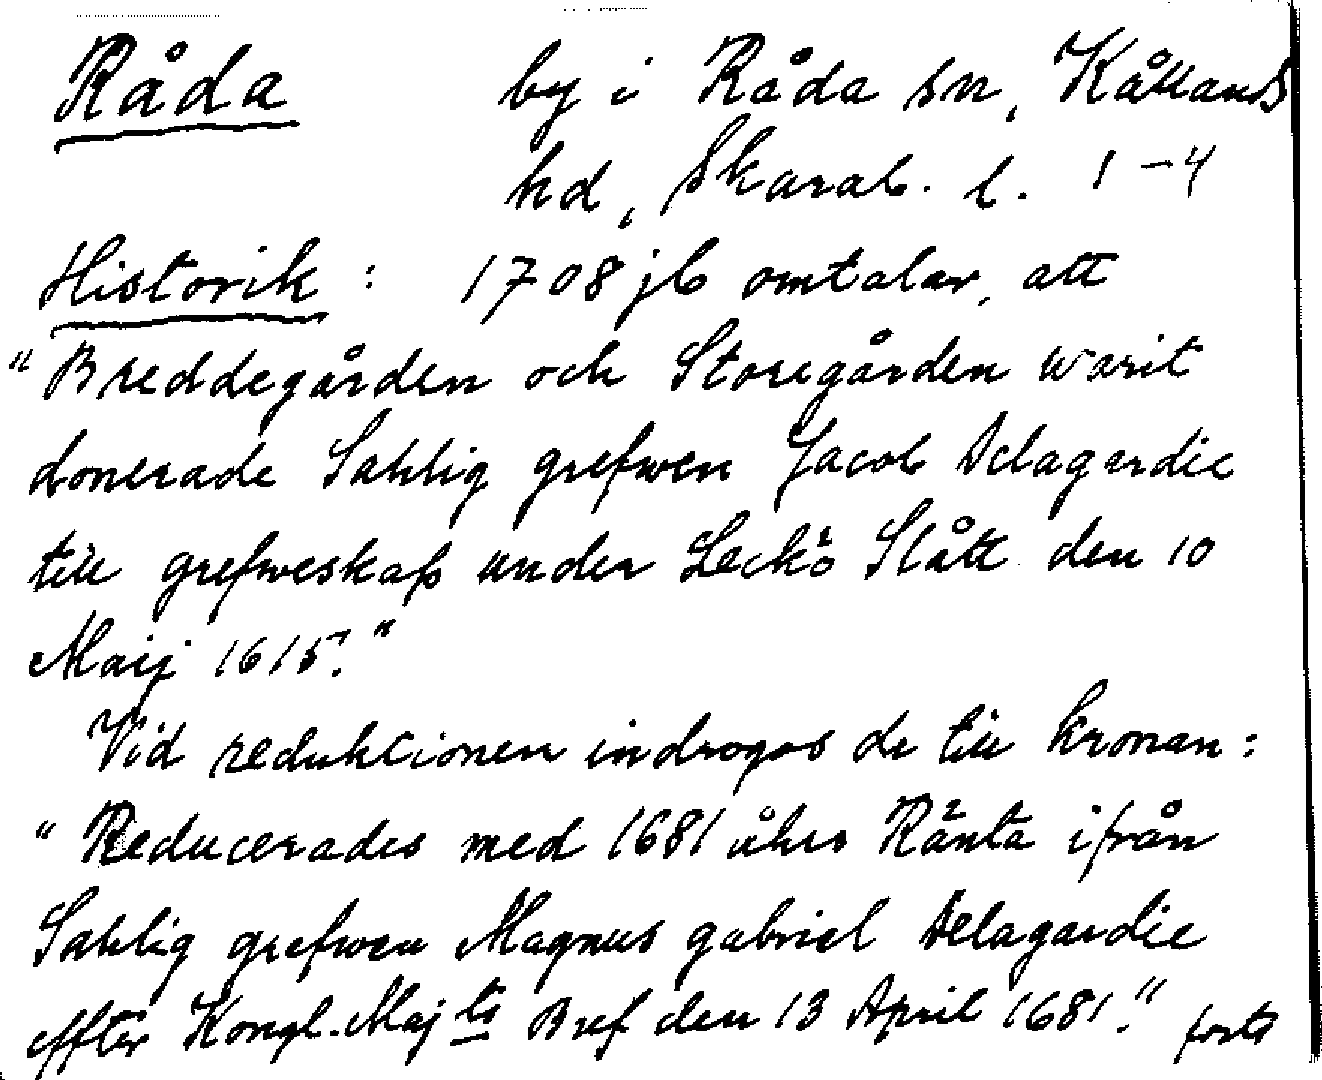 Råda by i Råda sn, Kållands
hd, Skarab. l. 1-4
Historik: 1708 jb omtalar, att
"Breddegården och Storegården warit
donerade Sahlig grefwen Jacob Delagardie
till grefweskap under Leckö Slått den 10
Maij 1615."
Vid reduktionen indrogos de till kronan:
"Reducerades med 1681 åhrs Ränta ifrån
Sahlig grefwen Magnus gabriel Delagardie
effter Kongl. Maj:ts Bref den 13 April 1681." forts